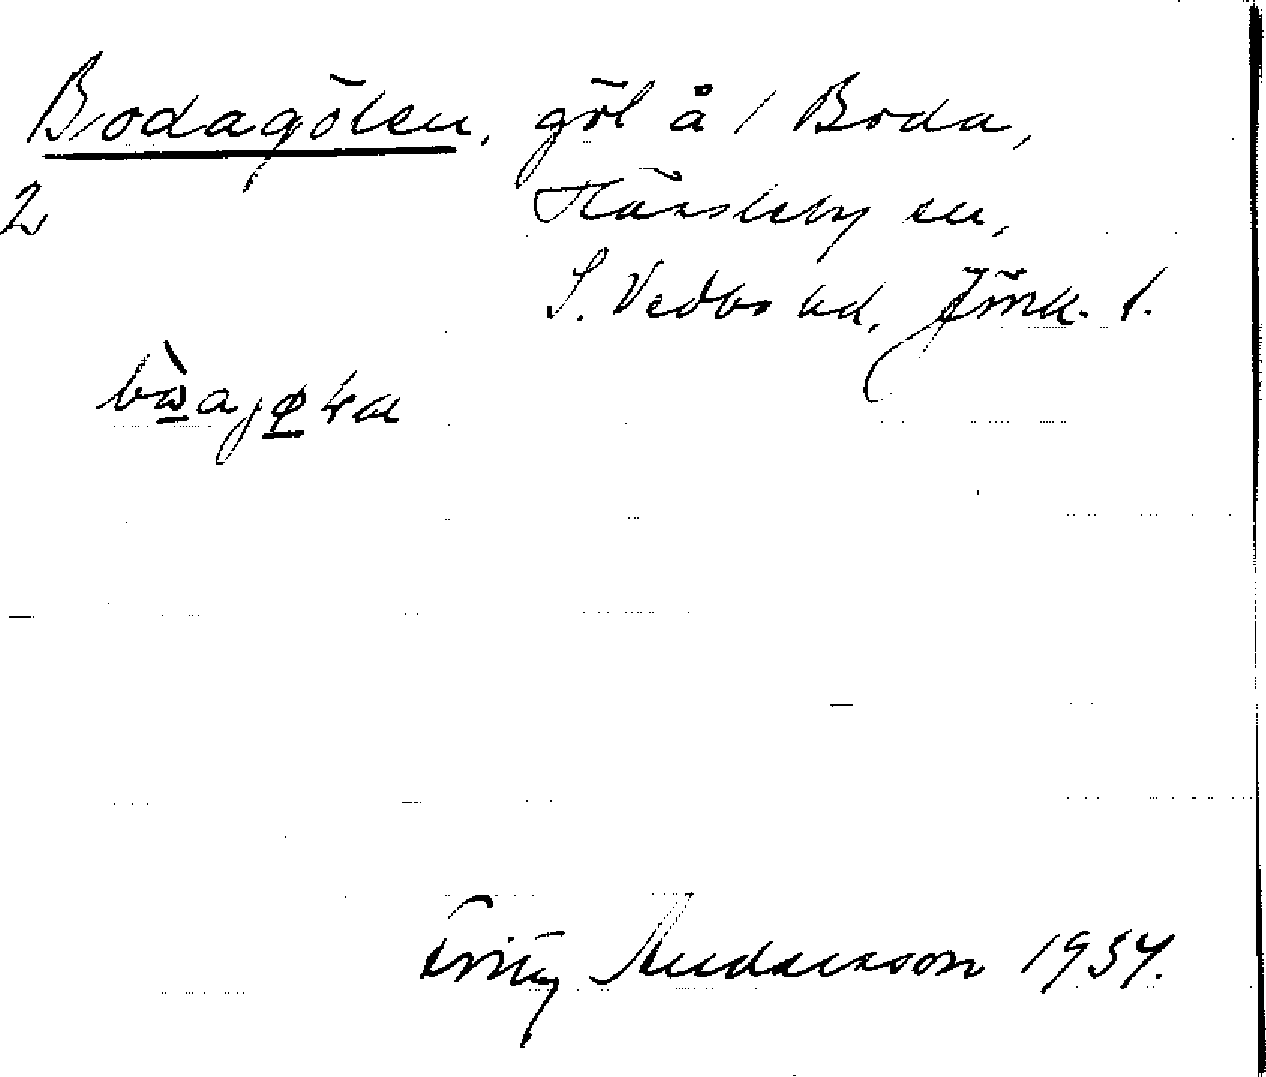 Bodagölen, göl å / Boda,
2 Hässleby sn,
S. Vedbo hd, Jönk. l.
Fritz Andersson 1934.